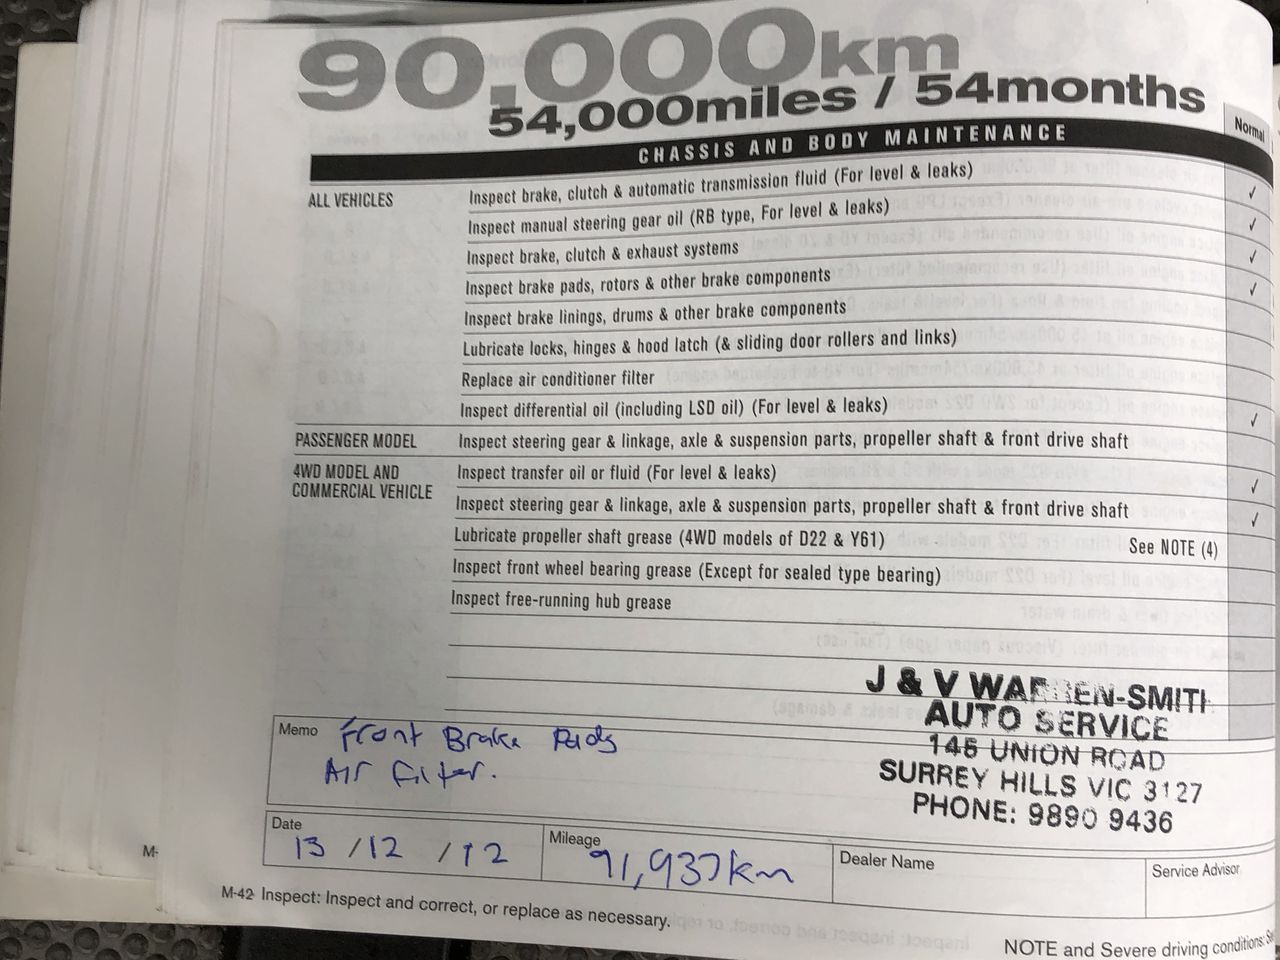 90,000km
54,000miles / 54months
Normal
CHASSIS AND BODY MAINTENANCE
ALL VEHICLES
Inspect brake, clutch & automatic transmission fluid (For level & leaks) ✓
Inspect manual steering gear oil (RB type, For level & leaks) ✓
Inspect brake, clutch & exhaust systems ✓
Inspect brake pads, rotors & other brake components ✓
Inspect brake linings, drums & other brake components
Lubricate locks, hinges & hood latch (& sliding door rollers and links)
Replace air conditioner filter
Inspect differential oil (including LSD oil) (For level & leaks) ✓
PASSENGER MODEL Inspect steering gear & linkage, axle & suspension parts, propeller shaft & front drive shaft
4WD MODEL AND
COMMERCIAL VEHICLE
Inspect transfer oil or fluid (For level & leaks) ✓
Inspect steering gear & linkage, axle & suspension parts, propeller shaft & front drive shaft ✓
Lubricate propeller shaft grease (4WD models of D22 & Y61) See NOTE (4)
Inspect front wheel bearing grease (Except for sealed type bearing)
Inspect free-running hub grease
J & V WARREN-SMITH
AUTO SERVICE
145 UNION ROAD
SURREY HILLS VIC 3127
PHONE: 9890 9436
Memo Front Brake Pads
Air Filter.
Date 13 / 12 / 12
Mileage 91,937km
Dealer Name
Service Advisor
M-42 Inspect: Inspect and correct, or replace as necessary.
NOTE and Severe driving conditions:
M-